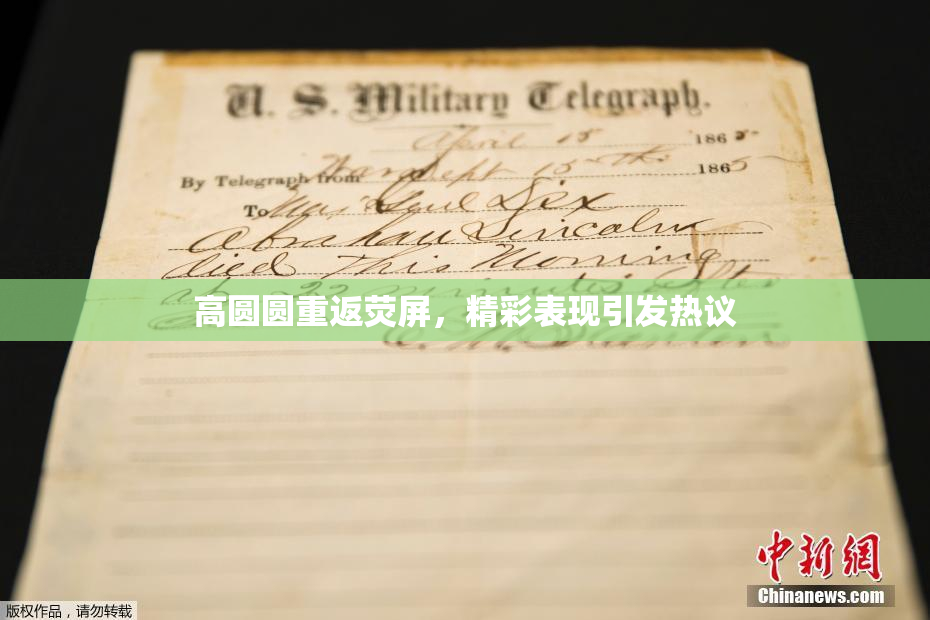 U. S. Military Telegraph.
April 15 1865
By Telegraph from War Dept 15th 1865
To Maj Genl Dix
Abraham Lincoln
died This Morning
at 22 minutes after
高圆圆重返荧屏，精彩表现引发热议
E. M. Stanton
中新网
Chinanews.com
版权作品，请勿转载